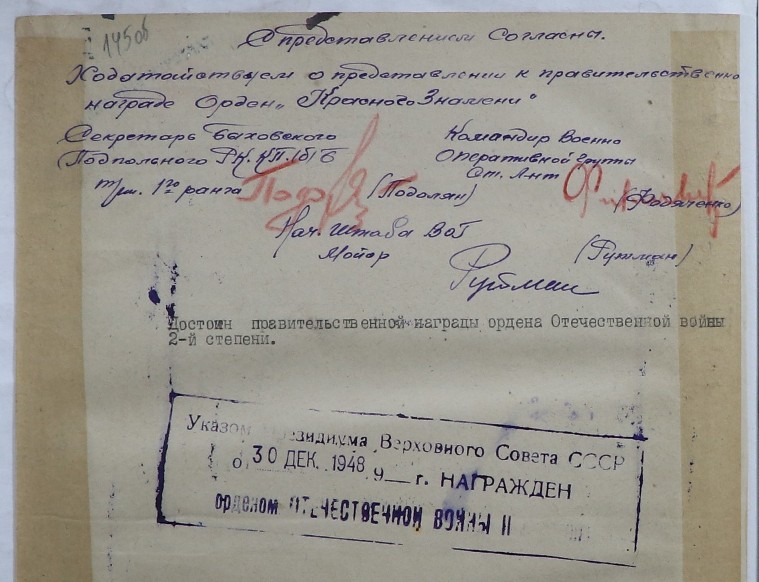 145об
С представлением согласны.
Ходатайствуем о представлении к правительственно
награде Орден „Красного Знамени“
Секретарь Быховского
Подпольного РК. КП./б/Б
1го ранга (Подолян)
Командир Военно
Оперативной группы
Ст. Л-нт (Федяченко)
Нач. Штаба ВОГ
Майор (Рутман)
Рутман
Достоин правительственной награды ордена Отечественной войны
2-й степени.
Указом Президиума Верховного Совета СССР
о 30 ДЕК. 1948 9__ г. НАГРАЖДЕН
орденом ОТЕЧЕСТВЕННОЙ ВОЙНЫ II